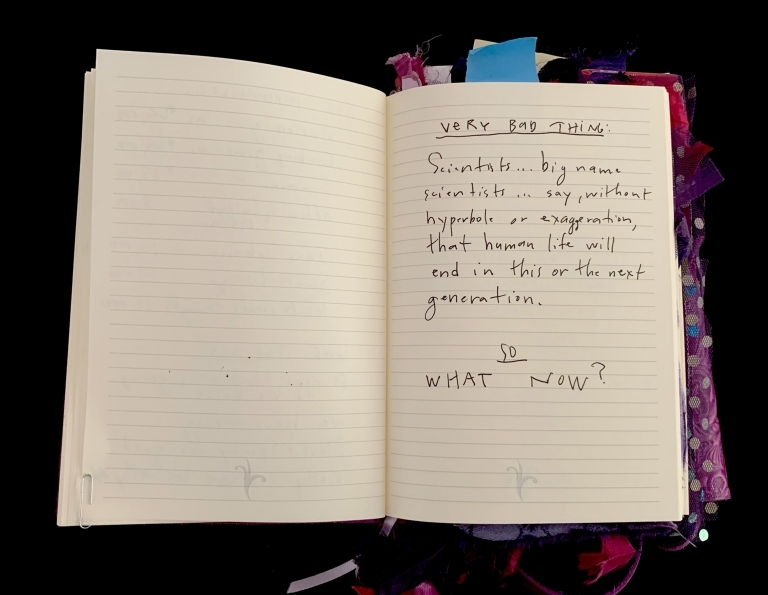 VERY BAD THING:
Scientists... big name
scientists ... say, without
hyperbole or exaggeration,
that human life will
end in this or the next
generation.
SO
WHAT NOW?